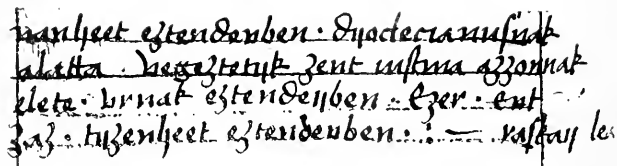 nanheet eztendeuben · dyoclecianusnak
alatta · vegeztetyk zent iustina azzonnak
elete · vrnak eztendeyben · Ezer · eut
zaz · tyzenheet eztendeuben · : — raskay le